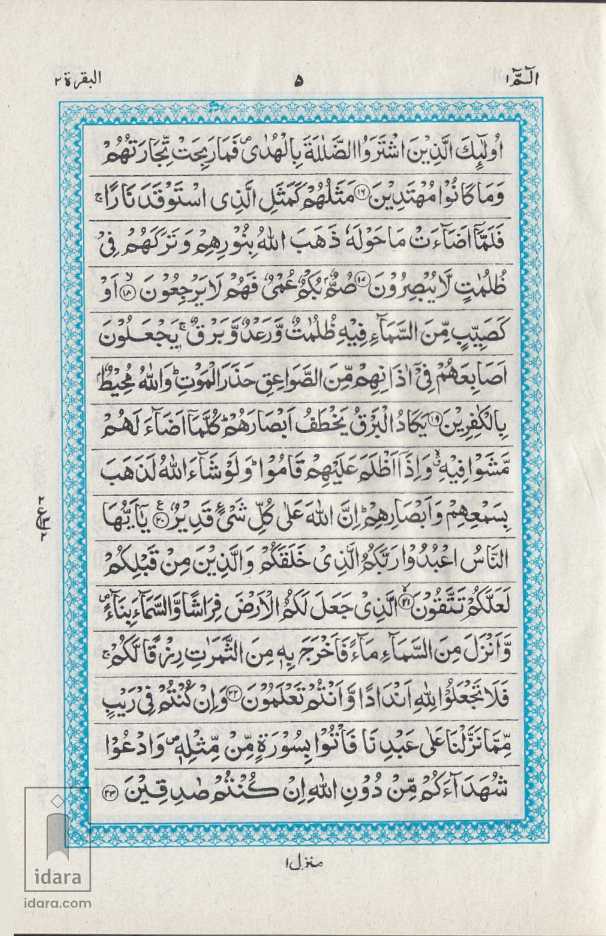 الٓمّٓ ۱ ۵ البقرة ۲
اُولٰٓئِكَ الَّذِیْنَ اشْتَرَوُا الضَّلٰلَةَ بِالْهُدٰی ۪ فَمَا رَبِحَتْ تِّجَارَتُهُمْ
وَمَا كَانُوْا مُهْتَدِیْنَ ﴿۱۶﴾ مَثَلُهُمْ كَمَثَلِ الَّذِی اسْتَوْقَدَ نَارًا ۚ
فَلَمَّاۤ اَضَآءَتْ مَا حَوْلَهٗ ذَهَبَ اللّٰهُ بِنُوْرِهِمْ وَتَرَكَهُمْ فِیْ
ظُلُمٰتٍ لَّا یُبْصِرُوْنَ ﴿۱۷﴾ صُمٌّۢ بُكْمٌ عُمْیٌ فَهُمْ لَا یَرْجِعُوْنَ ﴿۱۸﴾ اَوْ
كَصَیِّبٍ مِّنَ السَّمَآءِ فِیْهِ ظُلُمٰتٌ وَّرَعْدٌ وَّبَرْقٌ ۚ یَجْعَلُوْنَ
اَصَابِعَهُمْ فِیْۤ اٰذَانِهِمْ مِّنَ الصَّوَاعِقِ حَذَرَ الْمَوْتِ ؕ وَاللّٰهُ مُحِیْطٌۢ
بِالْكٰفِرِیْنَ ﴿۱۹﴾ یَكَادُ الْبَرْقُ یَخْطَفُ اَبْصَارَهُمْ ؕ كُلَّمَاۤ اَضَآءَ لَهُمْ
مَّشَوْا فِیْهِ ۙ وَاِذَاۤ اَظْلَمَ عَلَیْهِمْ قَامُوْا ؕ وَلَوْ شَآءَ اللّٰهُ لَذَهَبَ
بِسَمْعِهِمْ وَاَبْصَارِهِمْ ؕ اِنَّ اللّٰهَ عَلٰی كُلِّ شَیْءٍ قَدِیْرٌ ﴿۲۰﴾ یٰۤاَیُّهَا
النَّاسُ اعْبُدُوْا رَبَّكُمُ الَّذِیْ خَلَقَكُمْ وَالَّذِیْنَ مِنْ قَبْلِكُمْ
لَعَلَّكُمْ تَتَّقُوْنَ ﴿۲۱﴾ الَّذِیْ جَعَلَ لَكُمُ الْاَرْضَ فِرَاشًا وَّالسَّمَآءَ بِنَآءً ۪
وَّاَنْزَلَ مِنَ السَّمَآءِ مَآءً فَاَخْرَجَ بِهٖ مِنَ الثَّمَرٰتِ رِزْقًا لَّكُمْ ۚ
فَلَا تَجْعَلُوْا لِلّٰهِ اَنْدَادًا وَّاَنْتُمْ تَعْلَمُوْنَ ﴿۲۲﴾ وَاِنْ كُنْتُمْ فِیْ رَیْبٍ
مِّمَّا نَزَّلْنَا عَلٰی عَبْدِنَا فَاْتُوْا بِسُوْرَةٍ مِّنْ مِّثْلِهٖ ۪ وَادْعُوْا
شُهَدَآءَكُمْ مِّنْ دُوْنِ اللّٰهِ اِنْ كُنْتُمْ صٰدِقِیْنَ ﴿۲۳﴾
منزل ۱
idara
idara.com